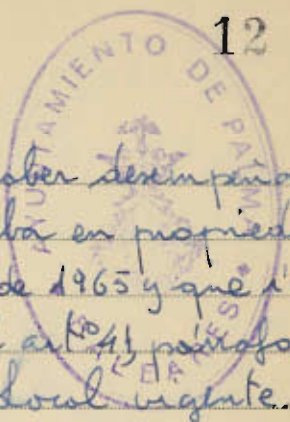 12
AYUNTAMIENTO DE PALMA
BALEARES *
haber desempeña
ba en propied
de 1965 y que i
artº 41 párrafo
Local vigente.